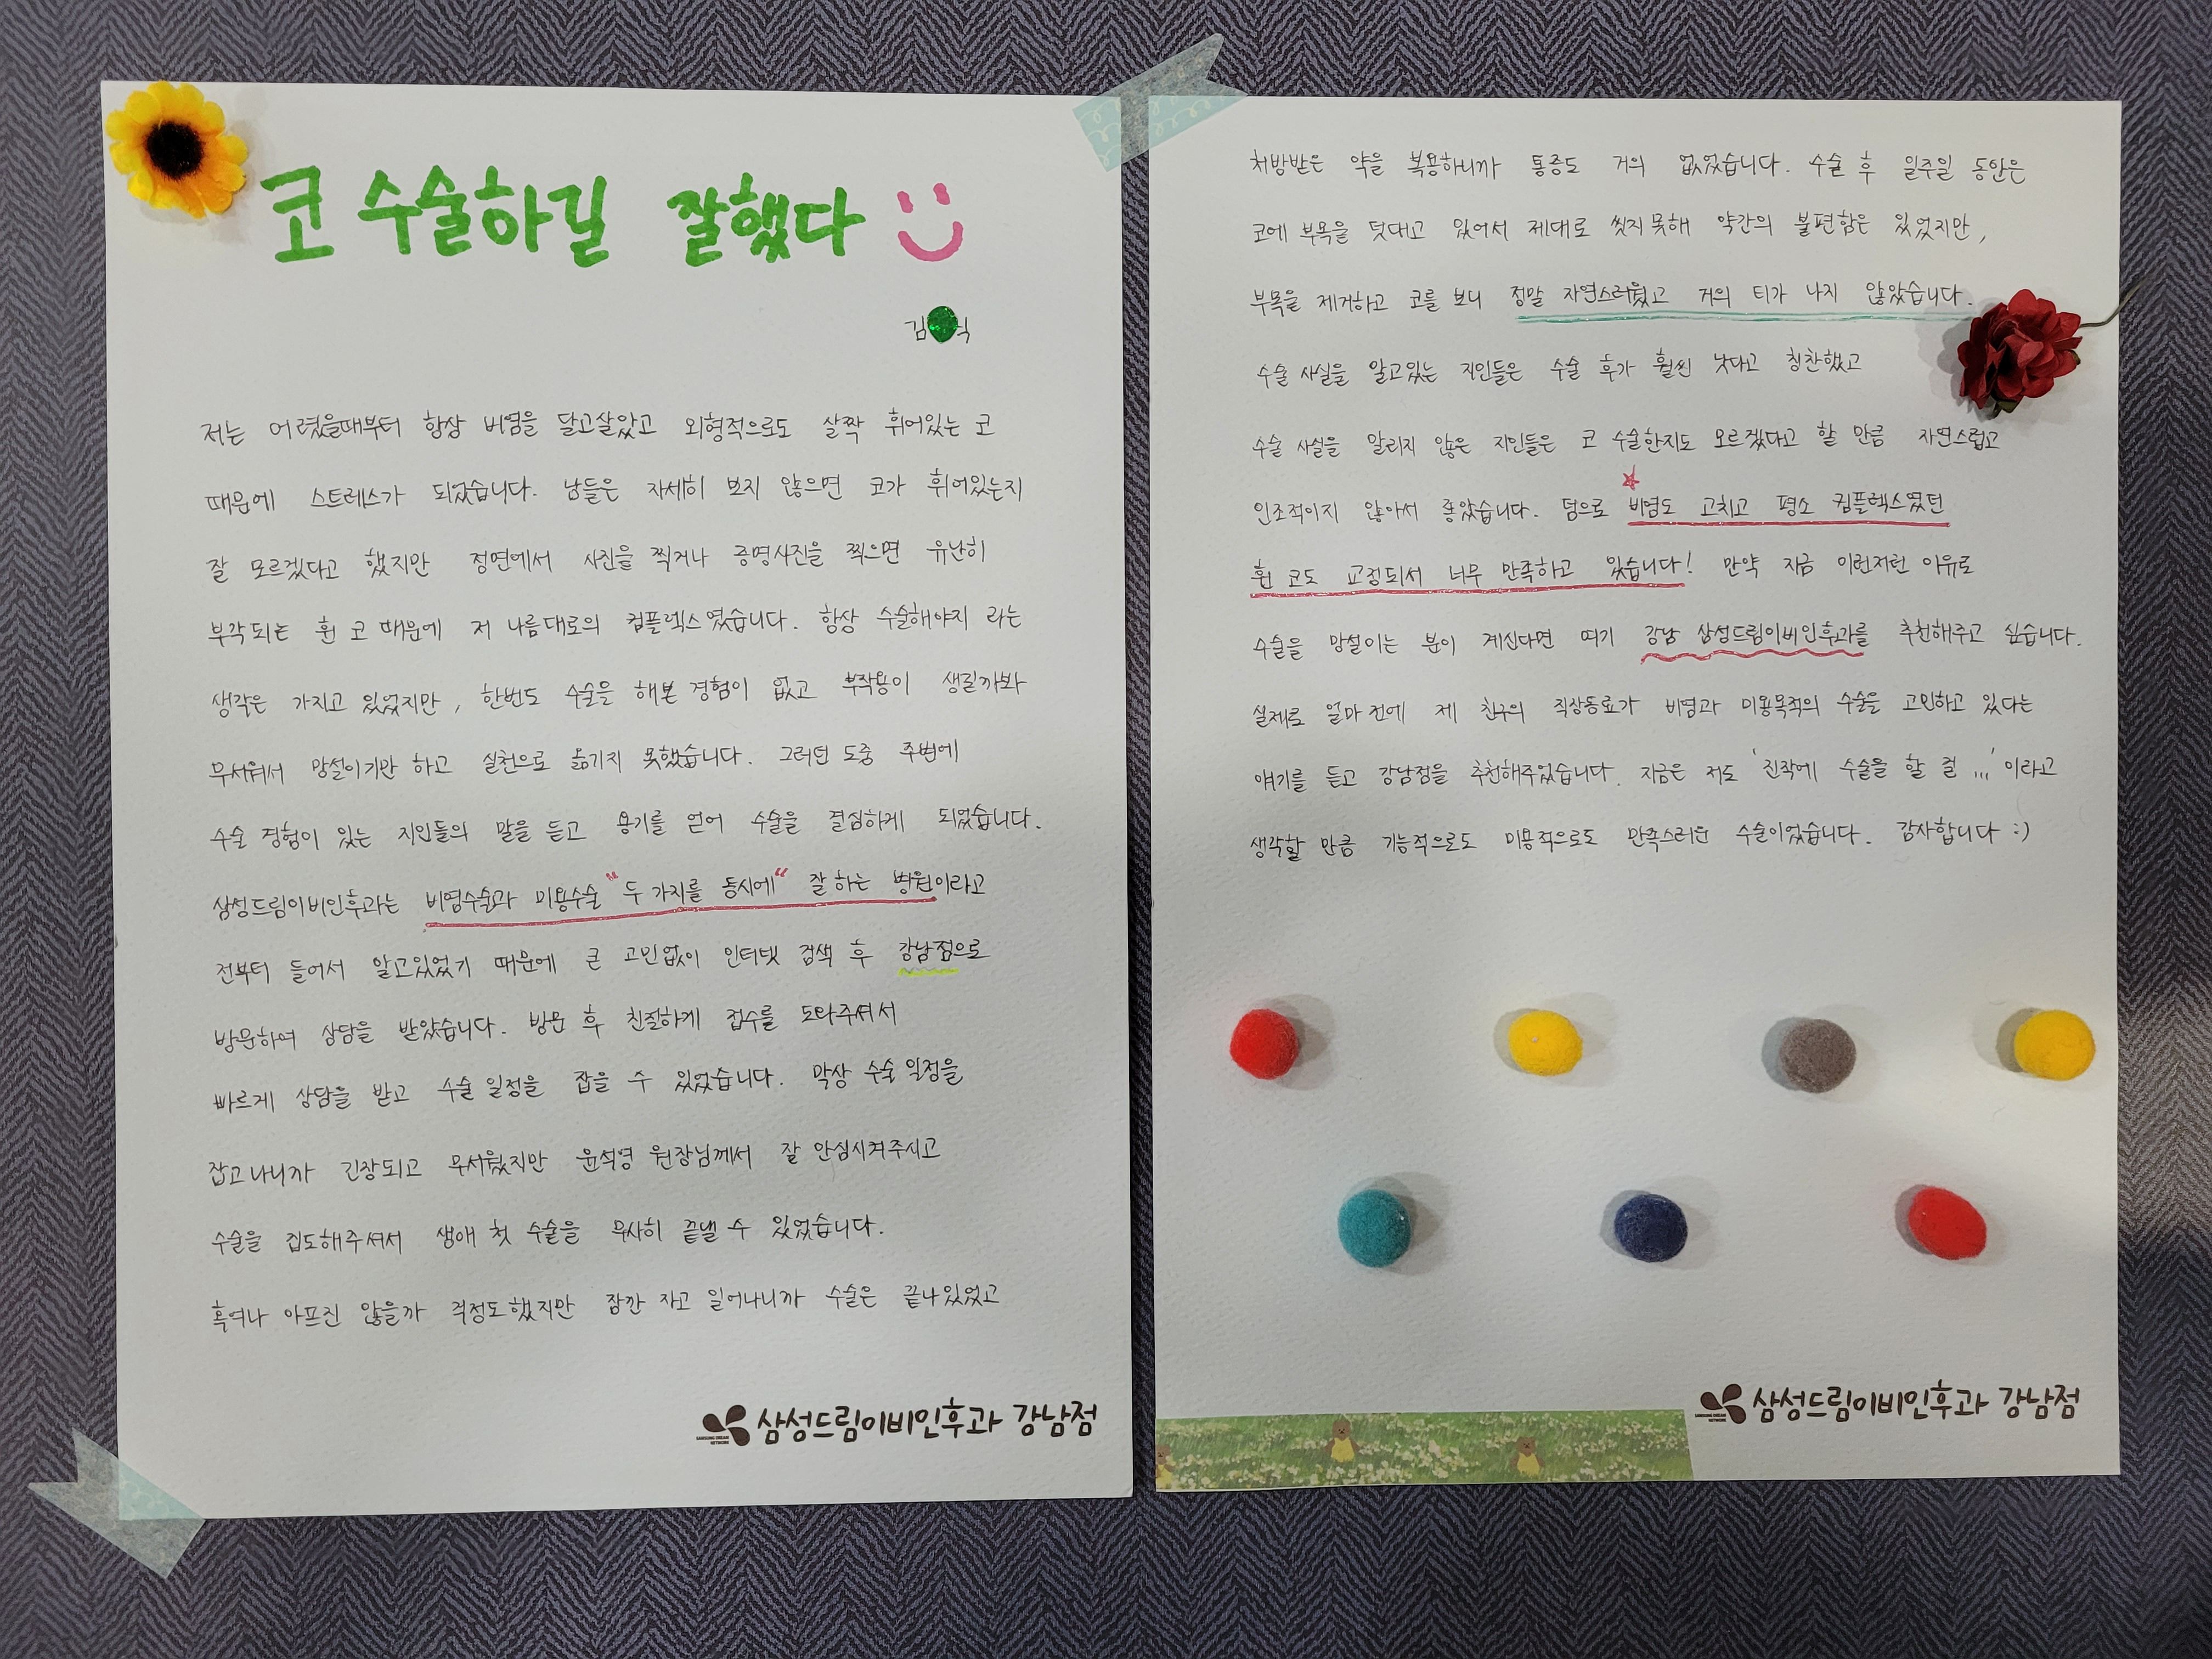 코 수술하길 잘했다
김 식
저는 어렸을때부터 항상 비염을 달고살았고 외형적으로도 살짝 휘어있는 코
때문에 스트레스가 되었습니다. 남들은 자세히 보지 않으면 코가 휘어있는지
잘 모르겠다고 했지만 정면에서 사진을 찍거나 증명사진을 찍으면 유난히
부각되는 휜 코 때문에 저 나름대로의 컴플렉스였습니다. 항상 수술해야지 라는
생각은 가지고 있었지만, 한번도 수술을 해본 경험이 없고 부작용이 생길까봐
무서워서 망설이기만 하고 실천으로 옮기지 못했습니다. 그러던 도중 주변에
수술 경험이 있는 지인들의 말을 듣고 용기를 얻어 수술을 결심하게 되었습니다.
삼성드림이비인후과는 비염수술과 미용수술 "두 가지를 동시에" 잘 하는 병원이라고
전부터 들어서 알고있었기 때문에 큰 고민없이 인터넷 검색 후 강남점으로
방문하여 상담을 받았습니다. 방문 후 친절하게 접수를 도와주셔서
빠르게 상담을 받고 수술 일정을 잡을 수 있었습니다. 막상 수술 일정을
잡고나니까 긴장되고 무서웠지만 윤석영 원장님께서 잘 안심시켜주시고
수술을 집도해주셔서 생애 첫 수술을 무사히 끝낼 수 있었습니다.
혹여나 아프진 않을까 걱정도했지만 잠깐 자고 일어나니까 수술은 끝나있었고
SAMSUNG DREAM NETWORK 삼성드림이비인후과 강남점
처방받은 약을 복용하니까 통증도 거의 없었습니다. 수술 후 일주일 동안은
코에 부목을 덧대고 있어서 제대로 씻지못해 약간의 불편함은 있었지만,
부목을 제거하고 코를 보니 정말 자연스러웠고 거의 티가 나지 않았습니다.
수술 사실을 알고있는 지인들은 수술 후가 훨씬 낫다고 칭찬했고
수술 사실을 알리지 않은 지인들은 코 수술한지도 모르겠다고 할 만큼 자연스럽고
인조적이지 않아서 좋았습니다. 덤으로 비염도 고치고 평소 컴플렉스였던
휜 코도 교정되서 너무 만족하고 있습니다! 만약 지금 이런저런 이유로
수술을 망설이는 분이 계신다면 여기 강남 삼성드림이비인후과를 추천해주고 싶습니다.
실제로 얼마전에 제 친구의 직장동료가 비염과 미용목적의 수술을 고민하고 있다는
얘기를 듣고 강남점을 추천해주었습니다. 지금은 저도 '진작에 수술을 할 걸...' 이라고
생각할 만큼 기능적으로도 미용적으로도 만족스러운 수술이었습니다. 감사합니다 :)
SAMSUNG DREAM NETWORK 삼성드림이비인후과 강남점